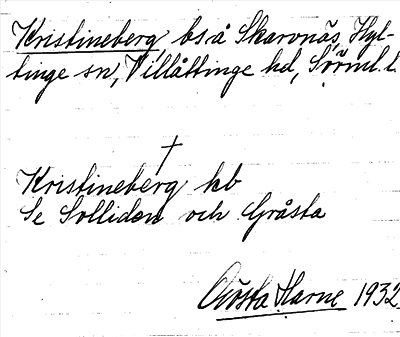 Kristineberg, bs å Skarvnäs, Hyl-
tinge sn, Villåttinge hd, Sörml. l.
†
Kristineberg kb
Se Solliden och Gråsta
Gösta Harne 1932.